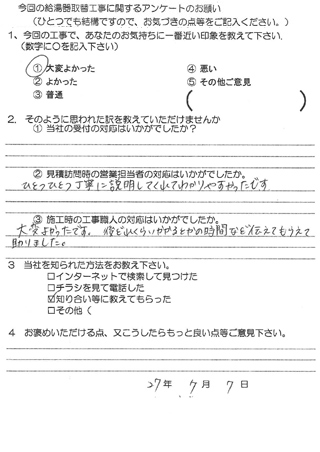 今回の給湯器取替工事に関するアンケートのお願い
(ひとつでも結構ですので、お気づきの点等をご記入ください。)
1、今回の工事で、あなたのお気持ちに一番近い印象を教えて下さい.
(数字に○を記入下さい)
① 大変よかった ④ 悪い
② よかった ⑤ その他ご意見
③ 普通 ( )
2. そのように思われた訳を教えていただけませんか
① 当社の受付の対応はいかがでしたか?
② 見積訪問時の営業担当者の対応はいかがでしたか。
ひとつひとつ丁寧に説明してくれてわかりやすかったです
③ 施工時の工事職人の対応はいかがでしたか。
大変よかったです。後どれくらいかかるとかの時間など伝えてもらえて
助りました。
3 当社を知られた方法をお教え下さい。
□インターネットで検索して見つけた
□チラシを見て電話した
☑知り合い等に教えてもらった
□その他(
4 お褒めいただける点、又こうしたらもっと良い点等ご意見下さい。
27年 7月 7日